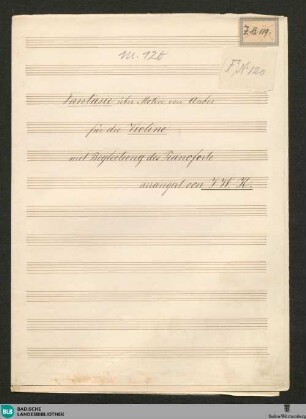 F. K. 119.
M. 120
F. N. 120
Fantasie über Motive von Auber
für die Violine
mit Begleitung des Pianoforte
arrangirt von J. W. K.
BLB BADISCHE
LANDESBIBLIOTHEK
Baden-Württemberg